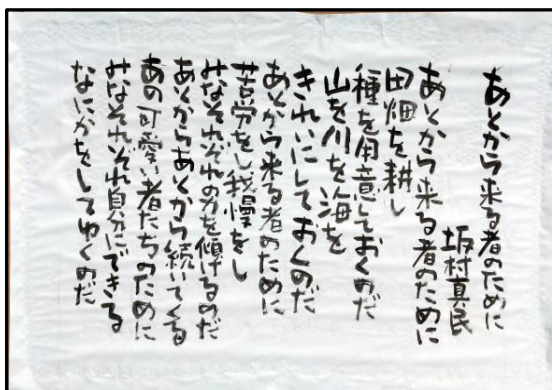 あとから来る者のために
坂村真民
あとから来る者のために
田畑を耕し
種を用意しておくのだ
山を川を海を
きれいにしておくのだ
あとから来る者のために
苦労をし我慢をし
みなそれぞれの力を傾けるのだ
あとからあとから続いてくる
あの可愛い者たちのために
みなそれぞれ自分にできる
なにかをしてゆくのだ